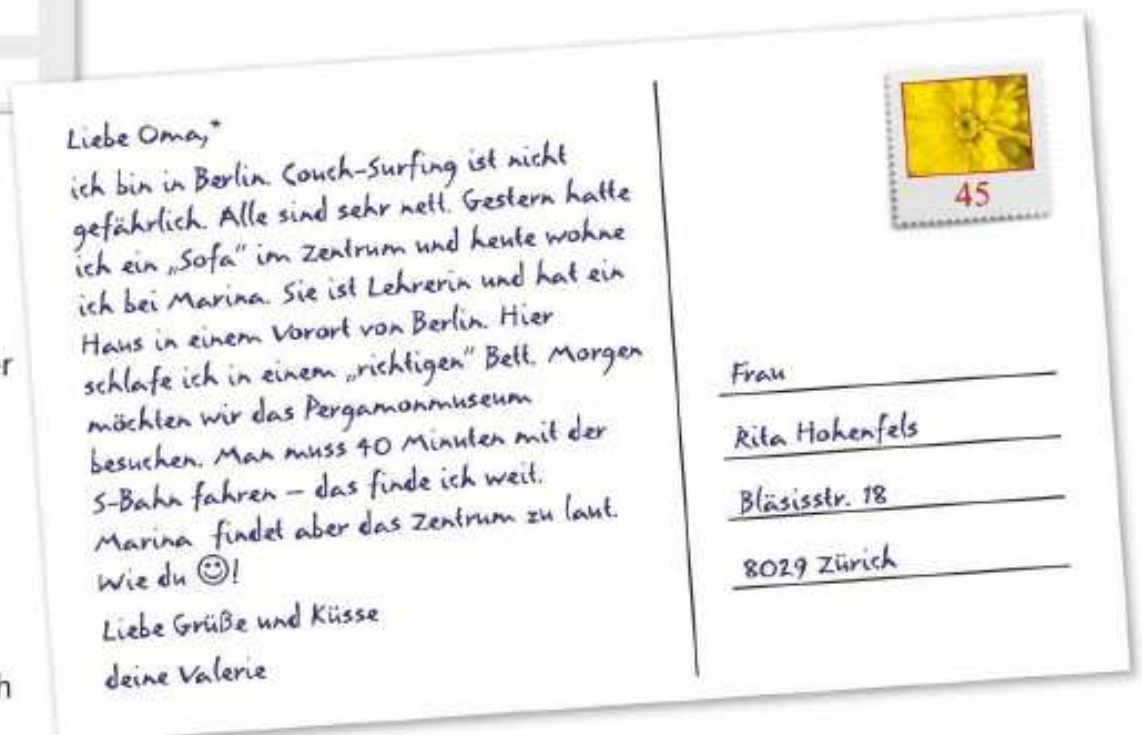 Liebe Oma,*
ich bin in Berlin. Couch-Surfing ist nicht
gefährlich. Alle sind sehr nett. Gestern hatte
ich ein „Sofa“ im Zentrum und heute wohne
ich bei Marina. Sie ist Lehrerin und hat ein
Haus in einem Vorort von Berlin. Hier
schlafe ich in einem „richtigen“ Bett. Morgen
möchten wir das Pergamonmuseum
besuchen. Man muss 40 Minuten mit der
S-Bahn fahren – das finde ich weit.
Marina findet aber das Zentrum zu laut.
Wie du ☺!
Liebe Grüße und Küsse
deine Valerie
45
Frau
Rita Hohenfels
Bläsisstr. 18
8029 Zürich